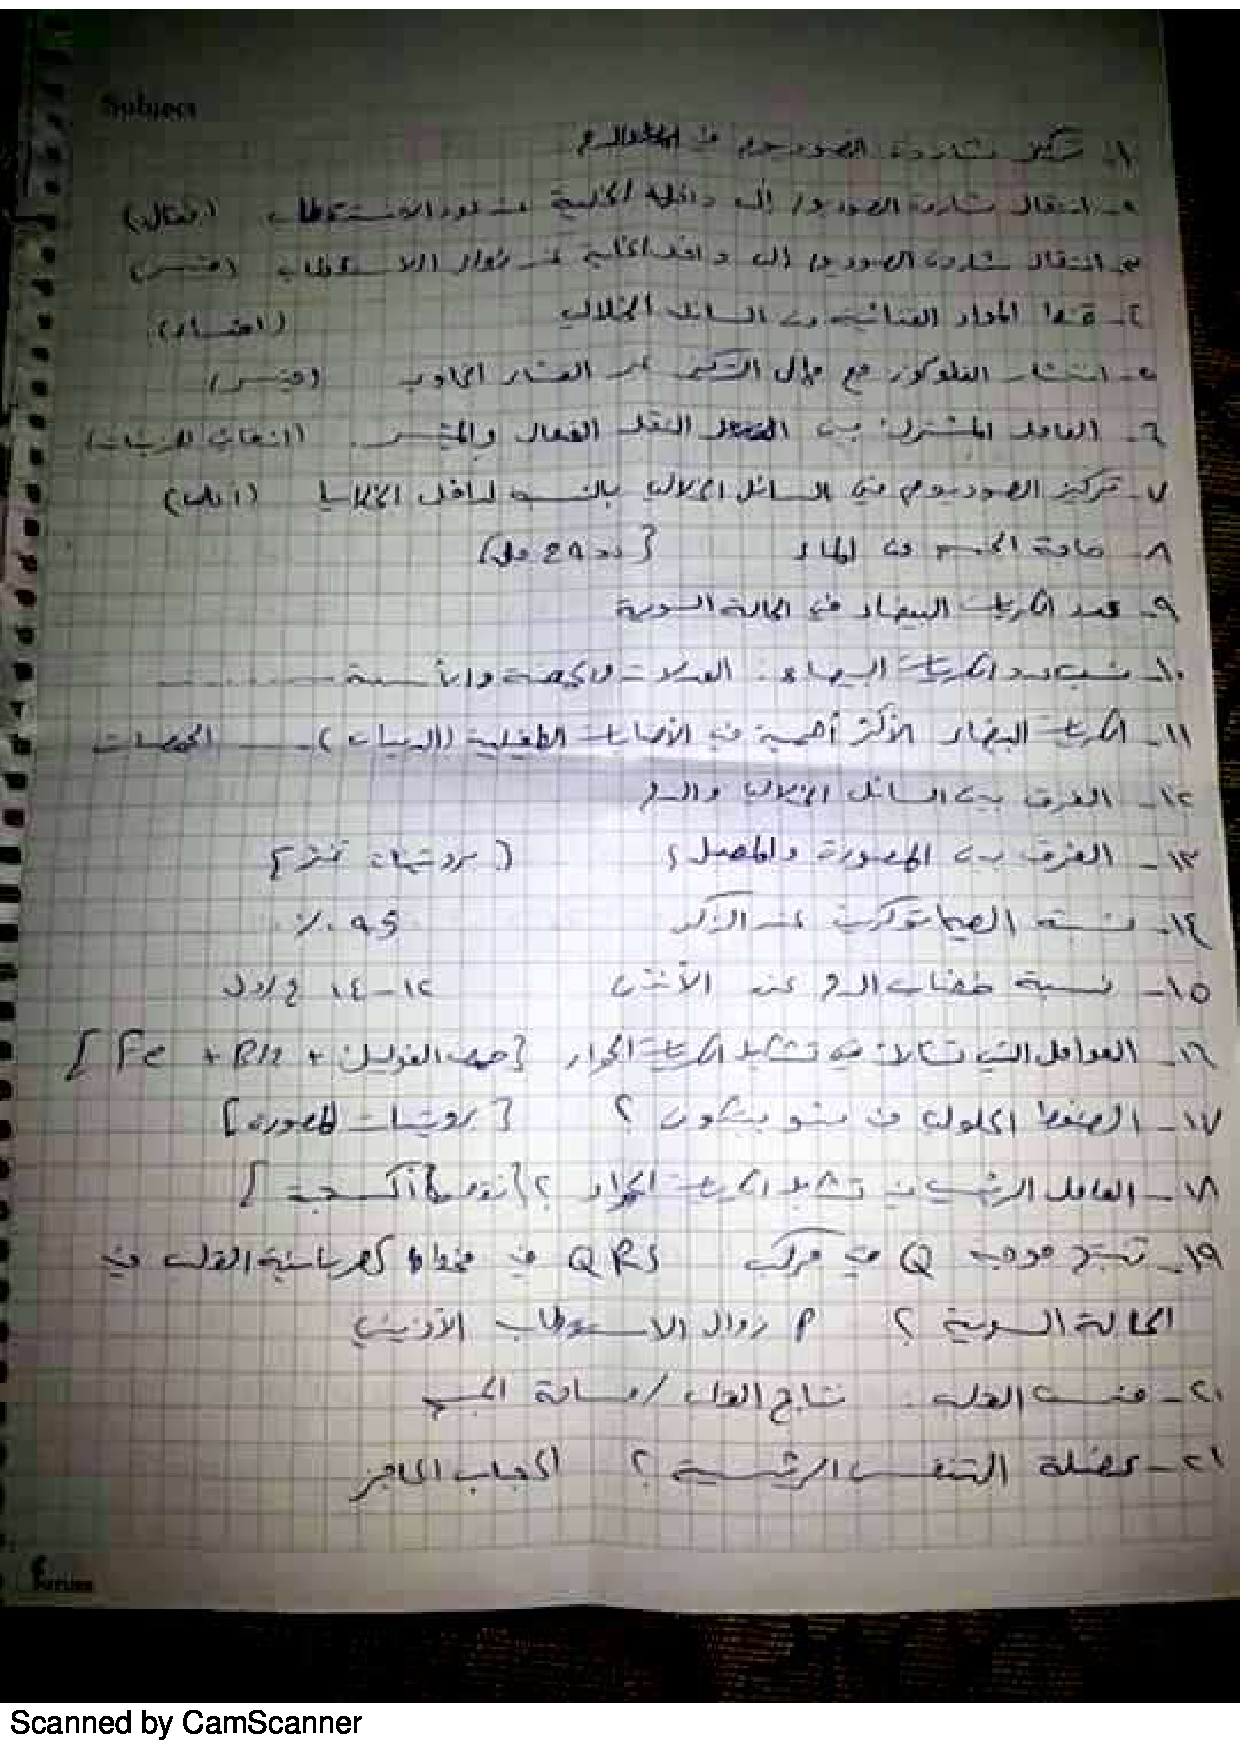 Subject
١- تركيز شاردة الصوديوم في الدم
٢- انتقال شاردة الصوديوم إلى داخل الخلية عند الاستقطاب (فعال)
٣- انتقال شاردة الصوديوم إلى داخل الخلية عند زوال الاستقطاب (ميسر)
٤- المواد الغذائية من السائل الخلالي
٥- انتشار الغلوكوز مع ممال التركيز عبر الغشاء الخلوي (ميسر)
٦- العامل المشترك بين النقل الفعال والميسر. (انتقائي للجزيئات)
٧- تركيز الصوديوم في السائل الخلالي بالنسبة لداخل الخلايا
٨- حاجة الجسم من الماء
٩- عدد الكريات البيضاء في الحالة السوية
١٠- نسب عدد الكريات البيضاء: العدلات والحمضة والأسسة ..........
١١- الكريات البيضاء الأكثر أهمية في الإصابات الطفيلية (الديدان) ... الحمضات
١٢- الفرق بين السائل الخلالي والدم
١٣- الفرق بين المصورة والمصل؟ [بروتينات تخثر]
١٤- نسبة الهيماتوكريت عند الذكر
١٥- نسبة خضاب الدم عند الأنثى ١٢-١٤ غ/دل
١٦- العوامل التي تشارك في تشكيل الكريات الحمراء [حمض الفوليك + B12 + Fe]
١٧- الضغط الحلولي من شو بيتكون؟ [بروتينات المصورة]
١٨- العامل الرئيسي في تشكيل الكريات الحمراء؟ [نقص الأكسجة]
١٩- تنتج موجة Q في مركب QRS في مخطط كهربائية القلب في
الحالة السوية؟ P زوال الاستقطاب الأذيني
٢٠- منسب القلب: نتاج القلب / مساحة الجسم
٢١- عضلة التنفس الرئيسية؟ الحجاب الحاجز
Scanned by CamScanner